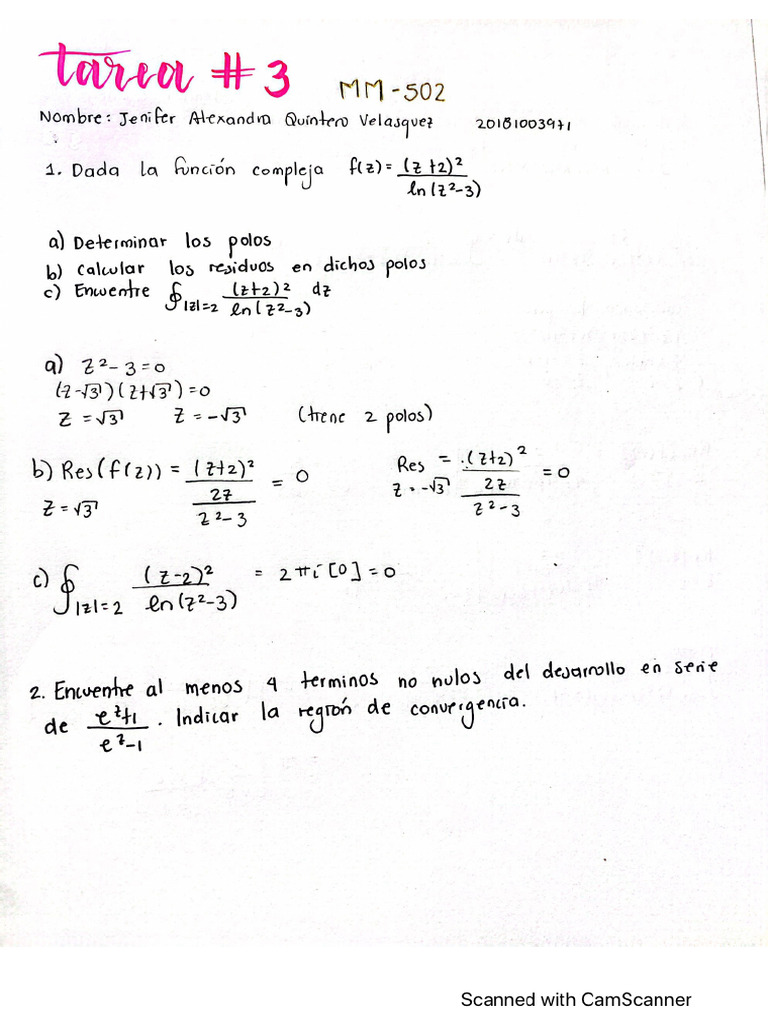 tarea # 3 MM-502
Nombre: Jenifer Alexandra Quintero Velasquez 20181003971
1. Dada la función compleja f(z) = (z+2)² / ln(z²-3)
a) Determinar los polos
b) Calcular los residuos en dichos polos
c) Encuentre ∮|z|=2 (z+2)² / ln(z²-3) dz
a) z²-3=0
(z-√3)(z+√3)=0
z=√3 z=-√3 (tiene 2 polos)
b) Res(f(z)) = (z+2)² / (2z / z²-3) = 0 Res = (z+2)² / (2z / z²-3) = 0
z=√3 z=-√3
c) ∮|z|=2 (z-2)² / ln(z²-3) = 2πi[0]=0
2. Encuentre al menos 4 terminos no nulos del desarrollo en serie
de e^z+1 / e^z-1 . Indicar la región de convergencia.
Scanned with CamScanner